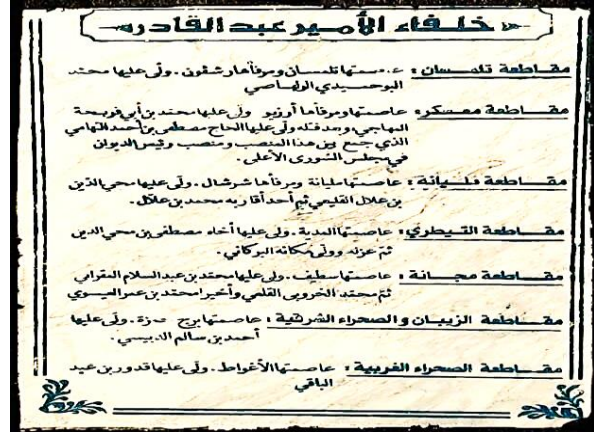 خلفاء الأمير عبد القادر
مقاطعة تلمسان : عاصمتها تلمسان ومرفأها رشقون . ولى عليها محمد
البوحميدي الولهاصي
مقاطعة معسكر : عاصمتها ومرفأها أرزيو ولى عليها محمد بن أبي فريحة
المهاجي ، وبعد قتله ولى عليها الحاج مصطفى بن أحمد التهامي
الذي جمع بين هذا المنصب ومنصب رئيس الديوان
في مجلس الشورى الأعلى .
مقاطعة مليانة : عاصمتها مليانة ومرفأها شرشال . ولى عليها محي الدين
بن علال القليعي ثم أحد أقاربه محمد بن علال .
مقاطعة التيطري : عاصمتها المدية . ولى عليها أخاه مصطفى بن محي الدين
ثم عزله وولى مكانه البركاني .
مقاطعة مجانة : عاصمتها سطيف . ولى عليها محمد بن عبد السلام المقراني
ثم محمد الخروبي القلعي وأخيرا محمد بن عمر العيسوي
مقاطعة الزيبان والصحراء الشرقية : عاصمتها برج حمزة . ولى عليها
أحمد بن سالم الدبيسي .
مقاطعة الصحراء الغربية : عاصمتها الأغواط . ولى عليها قدور بن عبد
الباقي